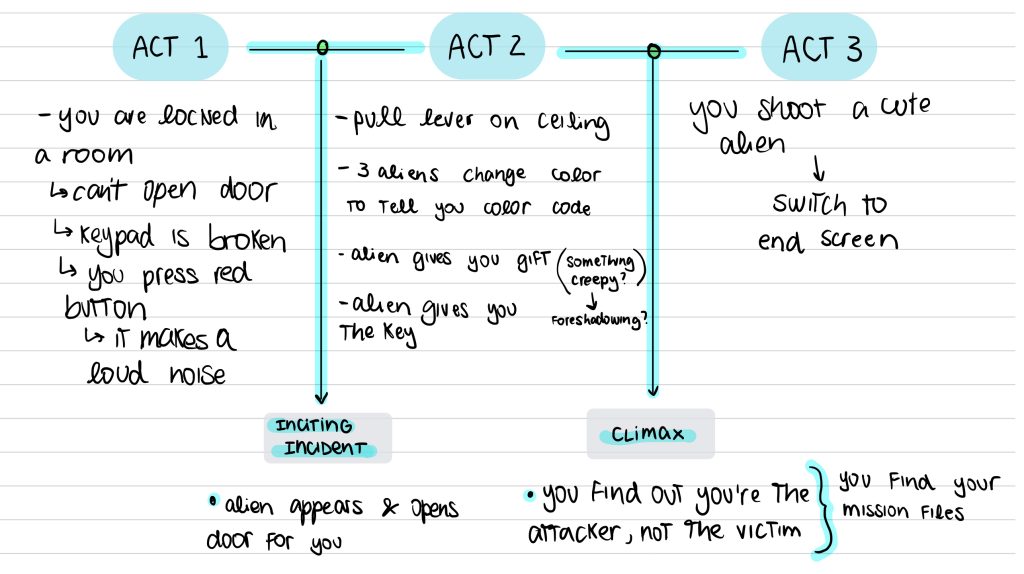 ACT 1
- you are locked in
a room
↳ can't open door
↳ keypad is broken
↳ you press red
button
↳ it makes a
loud noise
INCITING
INCIDENT
• alien appears & opens
door for you
ACT 2
- pull lever on ceiling
- 3 aliens change color
to tell you color code
- alien gives you gift (something
creepy?)
↓
foreshadowing?
- alien gives you
the key
CLIMAX
• you find out you're the
attacker, not the victim
you find your
mission files
ACT 3
you shoot a cute
alien
↓
switch to
end screen